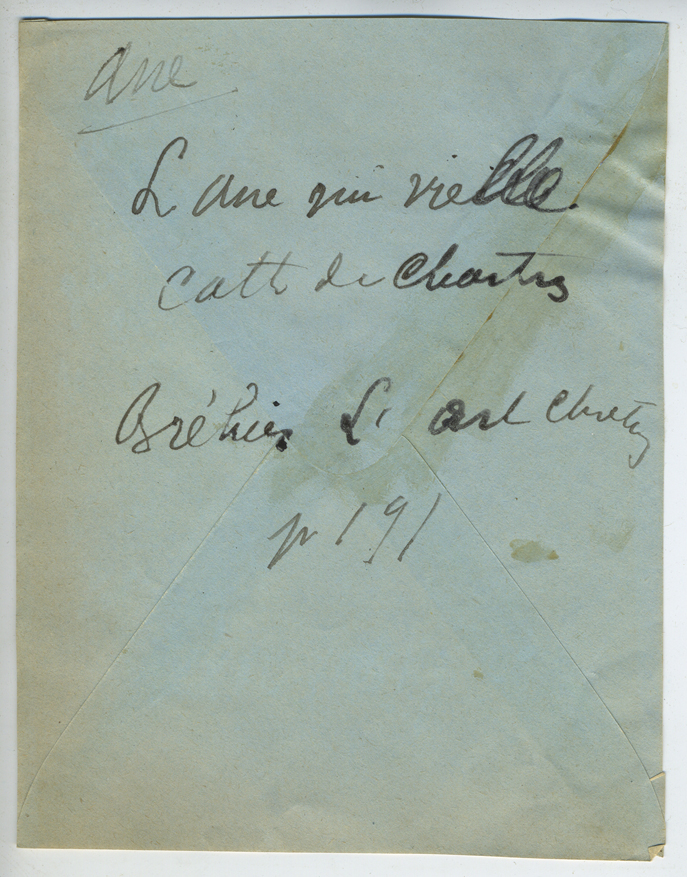 Ane
L ane qui vielle
Cath de Chartres
Bréhier L' art Chrétien
p 191